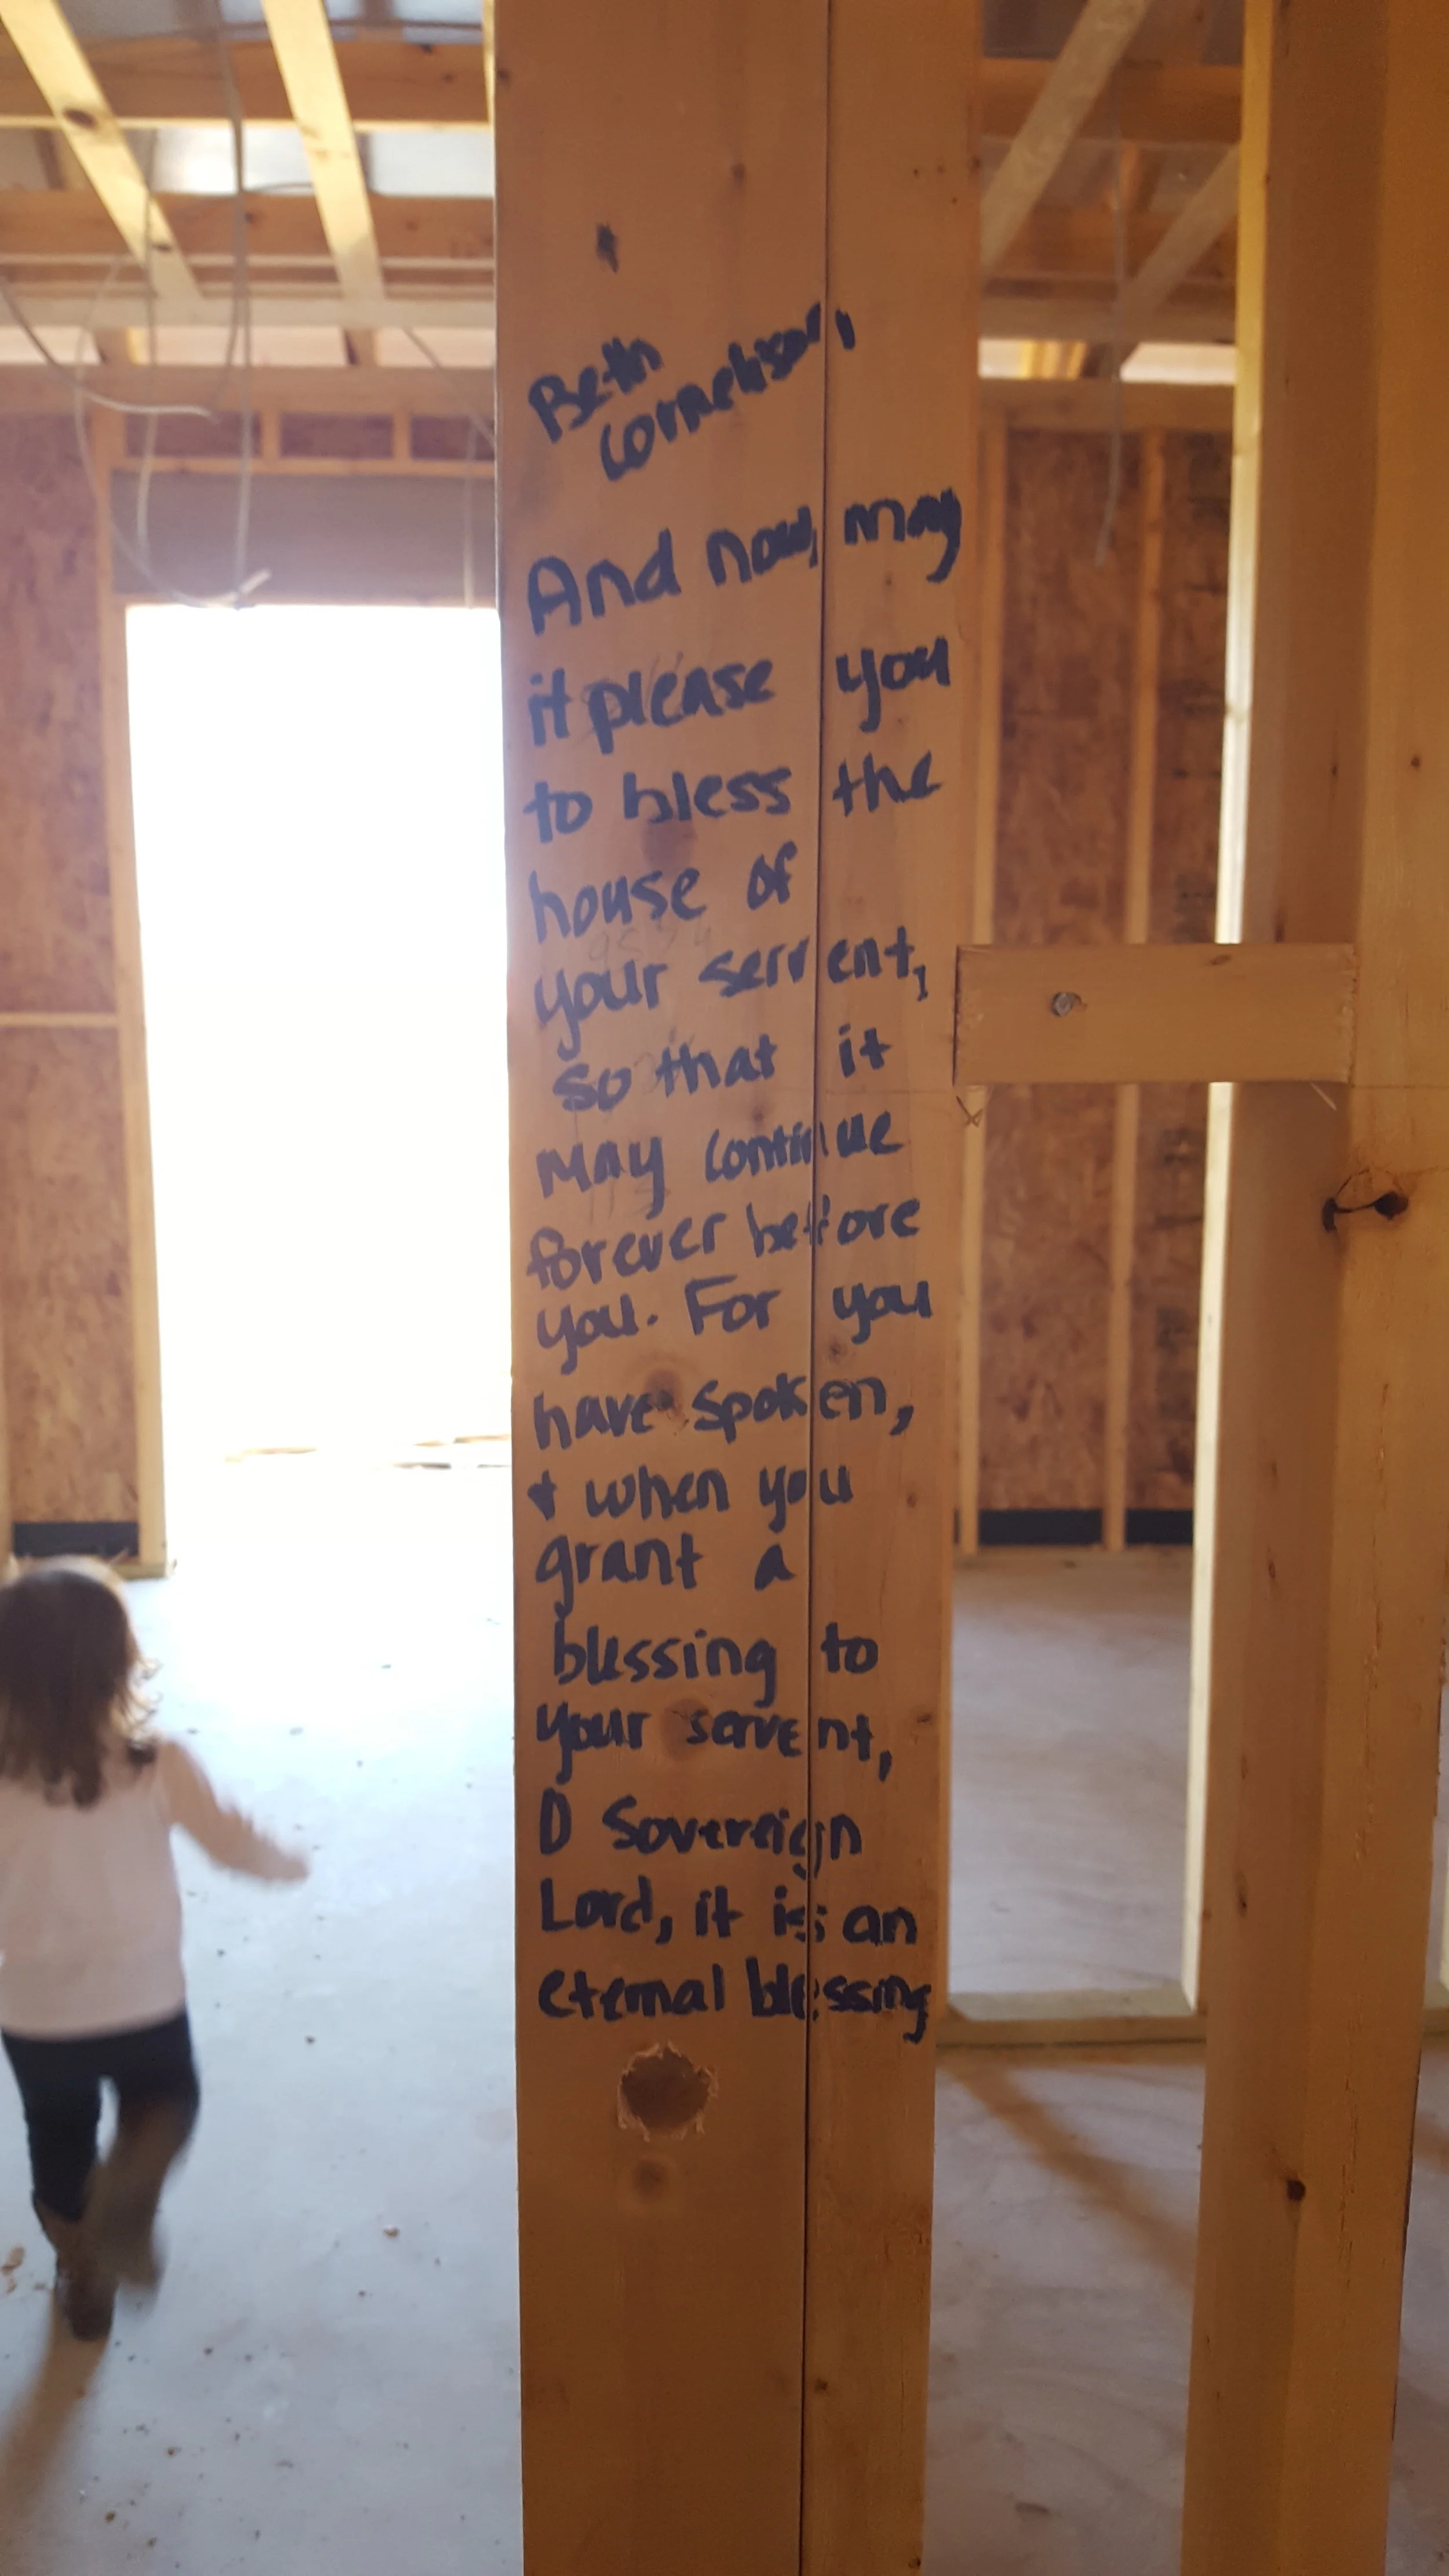 Beth
Cornelison,
And now, may
it please you
to bless the
house of
your servent,
so that it
may continue
forever before
you. For you
have spoken,
& when you
grant a
blessing to
your servent,
O Sovereign
Lord, it is an
eternal blessing